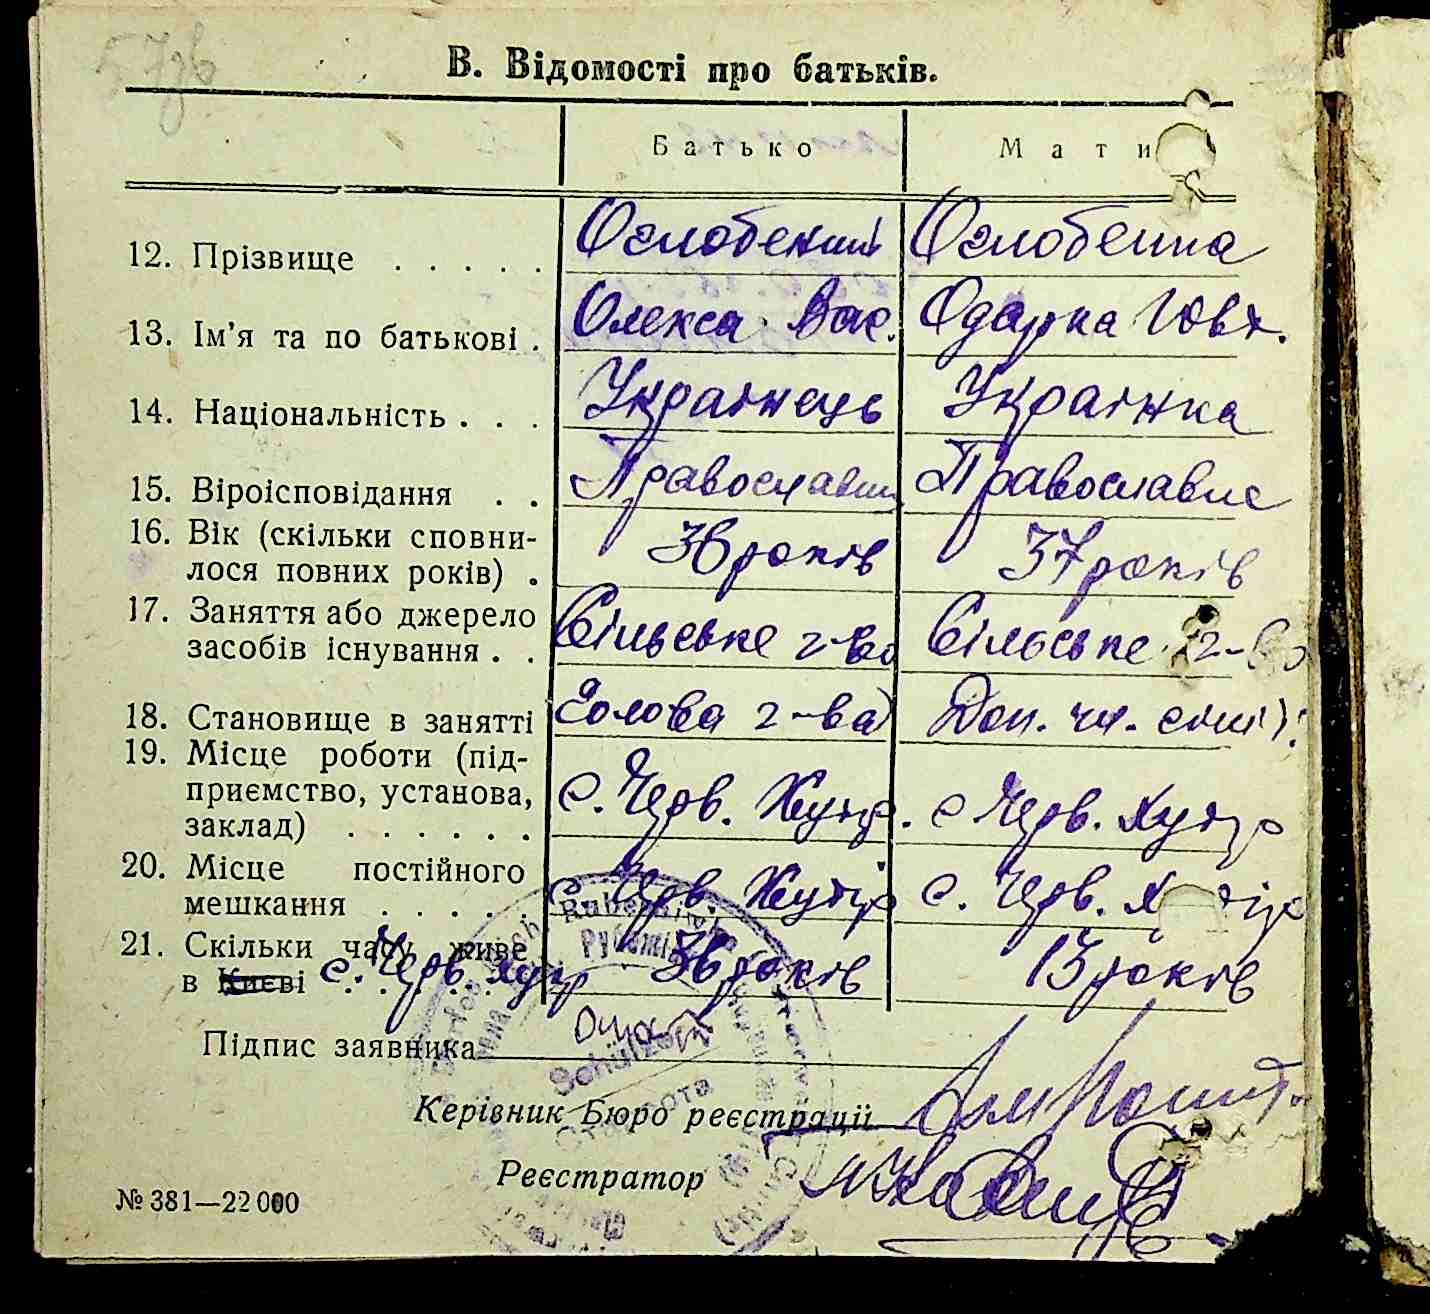 В. Відомості про батьків.
Батько Мати
12. Прізвище . . . . . Оглобенний Оглобенна
13. Ім'я та по батькові . Олекса Вас. ОдаркаЮвх.
14. Національність . . . Українець Українка
15. Віроісповідання . . Православн. Православне
16. Вік (скільки сповни-
лося повних років) . 36 років 37 років
17. Заняття або джерело
засобів існування . . Сільське г-во Сільське г-во
18. Становище в занятті Голова г-ва Доп. чл. сім'ї
19. Місце роботи (під-
приємство, установа,
заклад) . . . . . . с. Черв. Хутір с Черв. Хутір
20. Місце постійного
мешкання . . . . . с. Черв. Хутір с. Черв. Хутір
21. Скільки часу живе
в Києві с. Черв. Хутір 36 років 13 років
Підпис заявника
Schulze
Староста
Керівник Бюро реєстрації
Реєстратор
№ 381—22 000